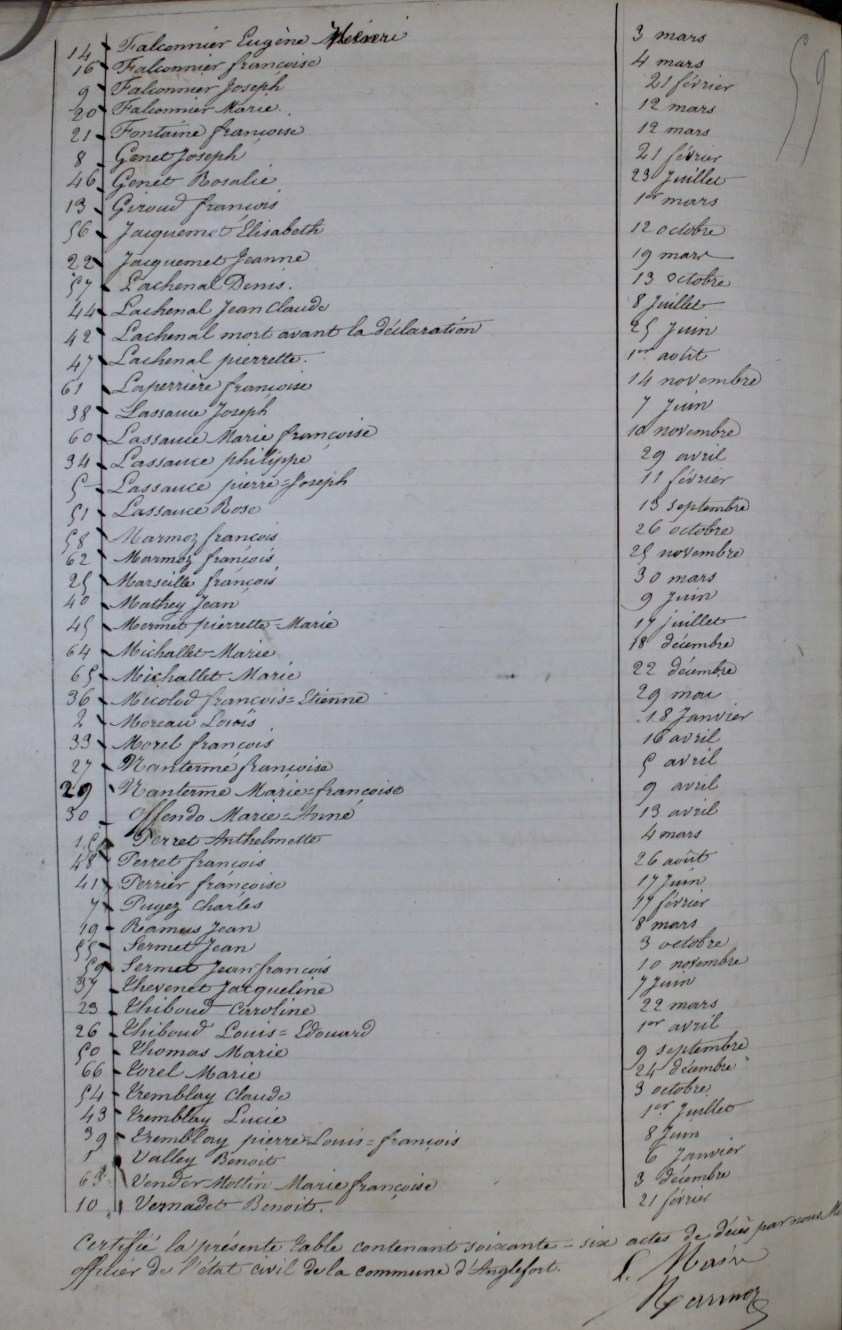 59
14 Falconnier Eugène Henri 3 mars
16 Falconnier françoise 4 mars
9 Falconnier Joseph 21 février
20 Falconnier Marie. 12 mars
21 Fontaine françoise 12 mars
8 Genet Joseph 21 février
46 Genet Rosalie 23 Juillet
13 Giroud françois 1er mars
56 Jacquemet Elisabeth 12 octobre
22 Jacquemet Jeanne 19 mars
57 Lachenal Denis. 13 octobre
44 Lachenal Jean Claude 8 Juillet
42 Lachenal mort avant la déclaration 25 Juin
47 Lachenal pierrette. 1er août
61 Laperrière françoise 14 novembre
38 Lassauce Joseph 7 Juin
60 Lassauce Marie françoise 10 novembre
34 Lassauce philippe 29 avril
5 Lassauce pierre=Joseph 11 février
51 Lassauce Rose 13 septembre
58 Marmoz françois 26 octobre
62 Marmoz françois 25 novembre
25 Marseille françois 30 mars
40 Mathey Jean 9 Juin
45 Mermet pierrette=Marie 17 juillet
64 Michallet Marie 18 décembre
65 Michallet Marie 22 décembre
36 Micolod françois=Etienne 29 mai
2 Moreau Louis 18 Janvier
33 Morel françois 16 avril
27 Nanterme françoise 5 avril
29 Nanterme Marie=françoise 9 avril
30 Offendo Marie= 13 avril
15 Perret Anthelmette 4 mars
48 Perret françois 26 août
41 Perrier françoise 17 Juin
7 Puyez Charles 17 février
19 Ramus Jean 8 mars
55 Sermet Jean 3 octobre
59 Sermet Jean françois 10 novembre
37 Thevenet Jacqueline 7 Juin
23 Thiboud Caroline 22 mars
26 Thiboud Louis=Edouard 1er avril
50 Thomas Marie 9 septembre
66 Torel Marie 24 décembre
54 Tremblay Claude 3 octobre
43 Tremblay Lucie 1er Juillet
39 Tremblay pierre=Louis=françois 8 Juin
1 Valley Benoit 6 Janvier
63 Vender Mollin Marie françoise 3 décembre
10 Vernadet Benoit. 21 février
Certifié la présente table contenant soixante=six actes de décès par nous
officier de l'état civil de la commune d'Anglefort.
Marmoz